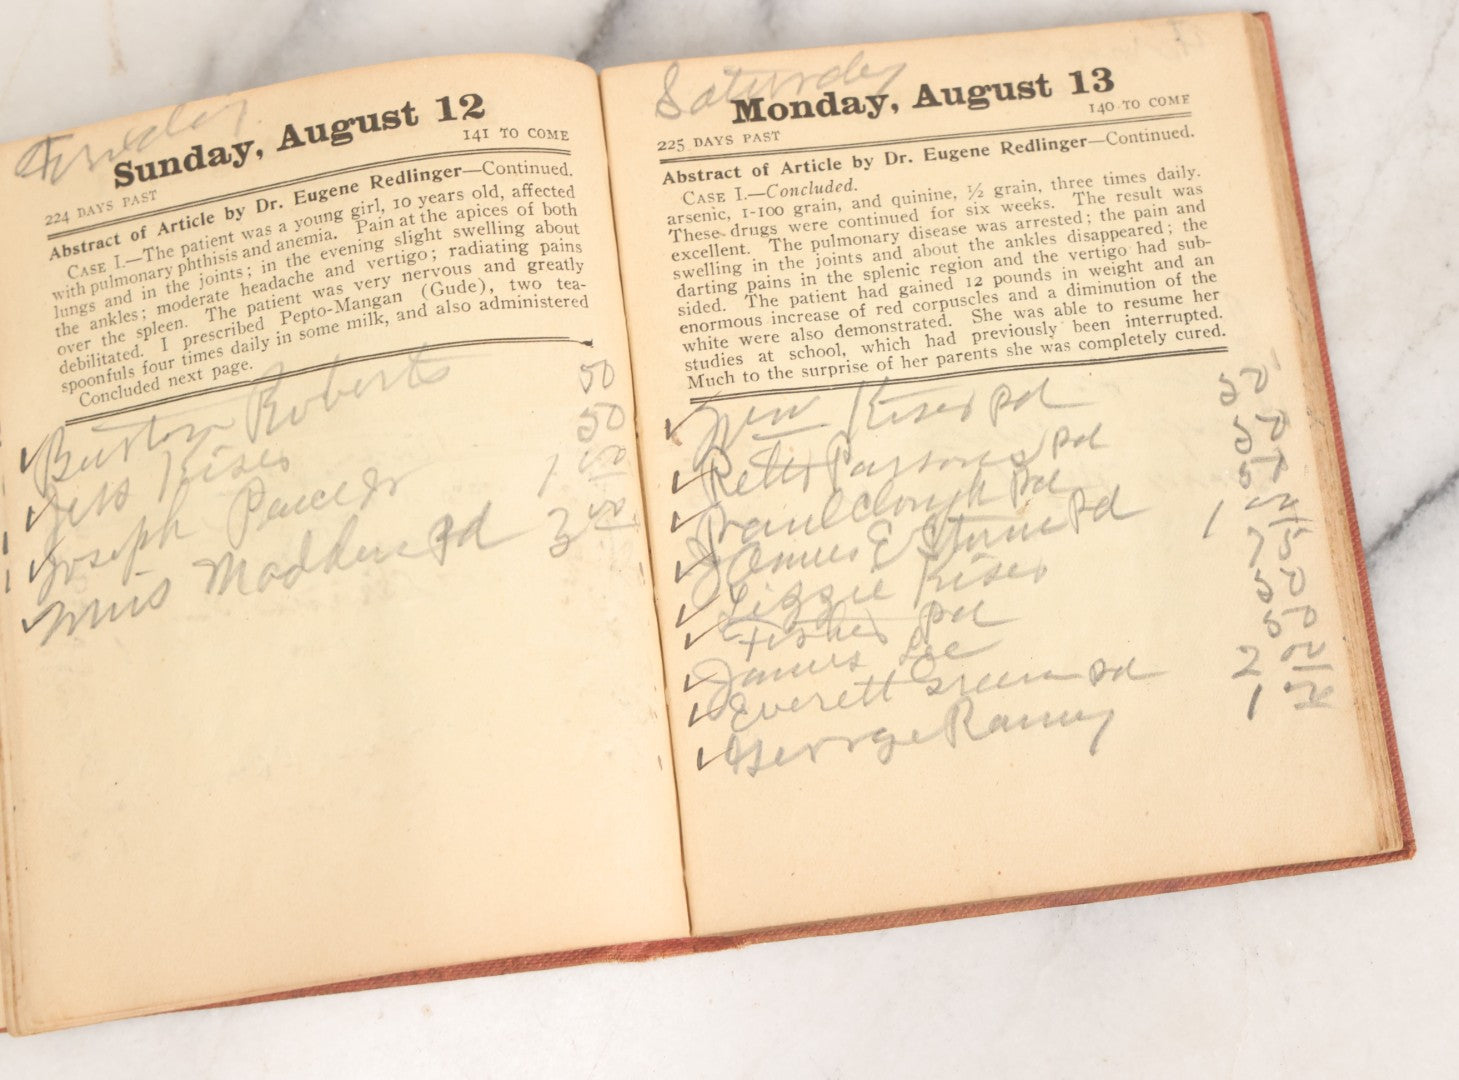 Friday
Sunday, August 12
224 DAYS PAST 141 TO COME
Abstract of Article by Dr. Eugene Redlinger—Continued.
CASE I.—The patient was a young girl, 10 years old, affected
with pulmonary phthisis and anemia. Pain at the apices of both
lungs and in the joints; in the evening slight swelling about
the ankles; moderate headache and vertigo; radiating pains
over the spleen. The patient was very nervous and greatly
debilitated. I prescribed Pepto-Mangan (Gude), two tea-
spoonfuls four times daily in some milk, and also administered
Concluded next page.
Burton Roberts 50
Jess Kises 50
Joseph 1 00
Miss Madden Pd 3 00
Saturday
Monday, August 13
225 DAYS PAST 140 TO COME
Abstract of Article by Dr. Eugene Redlinger—Continued.
CASE I.—Concluded.
arsenic, 1-100 grain, and quinine, ½ grain, three times daily.
These drugs were continued for six weeks. The result was
excellent. The pulmonary disease was arrested; the pain and
swelling in the joints and about the ankles disappeared; the
darting pains in the splenic region and the vertigo had sub-
sided. The patient had gained 12 pounds in weight and an
enormous increase of red corpuscles and a diminution of the
white were also demonstrated. She was able to resume her
studies at school, which had previously been interrupted.
Much to the surprise of her parents she was completely cured.
Kises pd 50
Parsons pd 50
pd 50
James E Pd 1 00
Lizzie Kises 75
Fisher pd 50
James Lee 50
Everett Green pd 2 00
George Raney 1